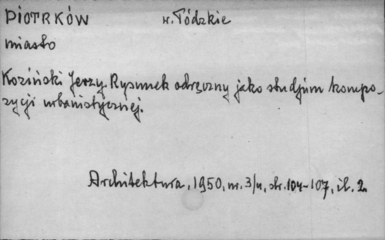 PIOTRKÓW w. Łódzkie
miasto
Koziński Jerzy. Rysunek odręczny jako studjum kompo-
zycji urbanistycznej.
Architektura, 1950, nr. 3/4, str. 104-107, il. 2